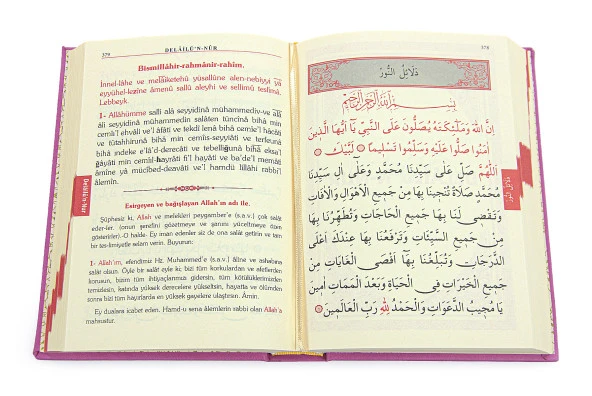 379
DELÂİLÜ'N-NÛR
Bismillâhir-rahmânir-rahîm.
İnnel-lâhe ve melâiketehü yüsallûne alen-nebiyyi yâ
eyyühel-lezîne âmenû sallû aleyhi ve sellimû teslîmâ.
Lebbeyk.
1- Allâhümme salli alâ seyyidinâ muhammediv-ve alâ
âli seyyidinâ muhammedin salâten tüncînâ bihâ min
cemî'l ehvâli vel'l âfâti ve tekdî lenâ bihâ cemîe'l hâcâti
ve tütahhirunâ bihâ min cemiis-seyyiâti ve terfeunâ
bihâ indeke e'lâ'd-derecâti ve tebelliğunâ bihâ eksa'l
ğâyâti min cemîil-hayrâti fi'l hayâti ve ba'de'l memâti
âmîne yâ mücîbed-deavâti vel' hamdü lillâhi rabbi'l
âlemîn.
Esirgeyen ve bağışlayan Allah'ın adı ile.
Şüphesiz ki, Allah ve melekleri peygamber'e (s.a.v.) çok salât
eder-ler. (onun şerefini gözetmeye ve şanını yüceltmeye özen
gösterirler)-O halde- Ey iman edenler siz de ona salât getirin ve tam
bir tes-limiyetle selam verin. Buyurun:
1- Allah'ım, efendimiz Hz. Muhammed'e (s.a.v.) âline ve ashabına
salât olsun. Öyle bir salât eyle ki; bizi tüm korkulardan ve afetlerden
korusun, bizim tüm ihtiyaçlarımızı gidersin, tüm kötülüklerimizden
temizlesin, katında yüksek derecelere yükseltsin, hayatta ve ölümden
sonra bizi tüm hayırlarda en yüksek gayelere ulaştırsın. Âmin.
Ey dualara icabet eden. Hamd-u sena âlemlerin rabbi olan Allah'a
mahsustur.
Delâilü'n-Nûr
378
دَلَائِلُ النُّورِ
بِسْمِ اللّٰهِ الرَّحْمٰنِ الرَّحِيمِ
اِنَّ اللّٰهَ وَمَلٰٓئِكَتَهُ يُصَلُّونَ عَلَى النَّبِيِّ يَٓا اَيُّهَا الَّذِينَ
اٰمَنُوا صَلُّوا عَلَيْهِ وَسَلِّمُوا تَسْلِيمًا لَبَّيْكَ
اَللّٰهُمَّ صَلِّ عَلٰى سَيِّدِنَا مُحَمَّدٍ وَعَلٰٓى اٰلِ سَيِّدِنَا
مُحَمَّدٍ صَلَاةً تُنْجِينَا بِهَا مِنْ جَمِيعِ الْاَهْوَالِ وَالْاٰفَاتِ
وَتَقْضِى لَنَا بِهَا جَمِيعَ الْحَاجَاتِ وَتُطَهِّرُنَا بِهَا
مِنْ جَمِيعِ السَّيِّئَاتِ وَتَرْفَعُنَا بِهَا عِنْدَكَ اَعْلَى
الدَّرَجَاتِ وَتُبَلِّغُنَا بِهَا اَقْصَى الْغَايَاتِ مِنْ
جَمِيعِ الْخَيْرَاتِ فِي الْحَيَاةِ وَبَعْدَ الْمَمَاتِ اٰمِينَ
يَا مُجِيبَ الدَّعَوَاتِ وَالْحَمْدُ لِلّٰهِ رَبِّ الْعَالَمِينَ
دَلَائِلُ النُّورِ